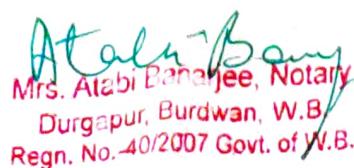 Atabi Banerjee
Mrs. Atabi Banerjee, Notary
Durgapur, Burdwan, W.B.
Regn. No.-40/2007 Govt. of W.B.